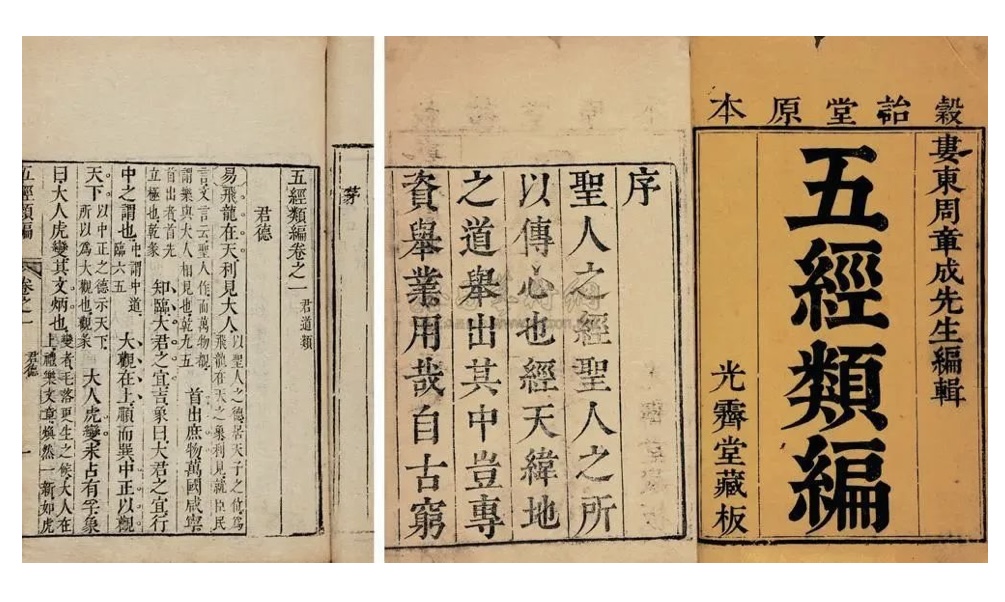 穀詒堂原本
婁東周章成先生編輯
五經類編
光霽堂藏板
序
聖人之經聖人之所
以傳心也經天緯地
之道舉出其中豈專
資舉業用哉自古窮
茅
五經類編卷之一 君道類
君德
易飛龍在天利見大人 以聖人之德居天子之位爲飛龍在天之象利見就臣民
言文言云聖人作而萬物覩謂樂與大人相見也乾九五 首出庶物萬國咸寧
首出者首先立極也乾彖 知臨大君之宜吉象曰大君之宜行
中之謂也 中謂中道臨六五 大觀在上順而巽中正以觀
天下 以中正之德示天下所以爲大觀也觀彖 大人虎變未占有孚象
曰大人虎變其文炳也 變者毛落更生之候大人在上禮樂文章煥然一新如虎
五經類編 卷之一 君德 一